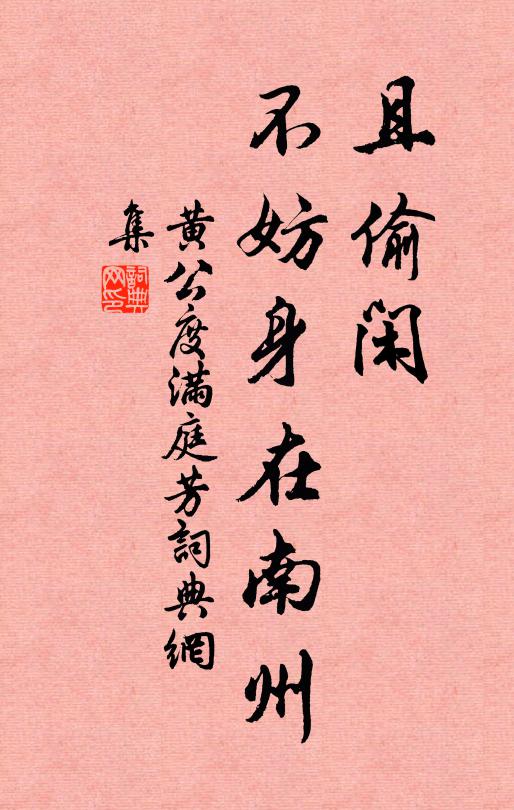 且偷闲
不妨身在南州
黄公度满庭芳詞典網
集
詞典
网印